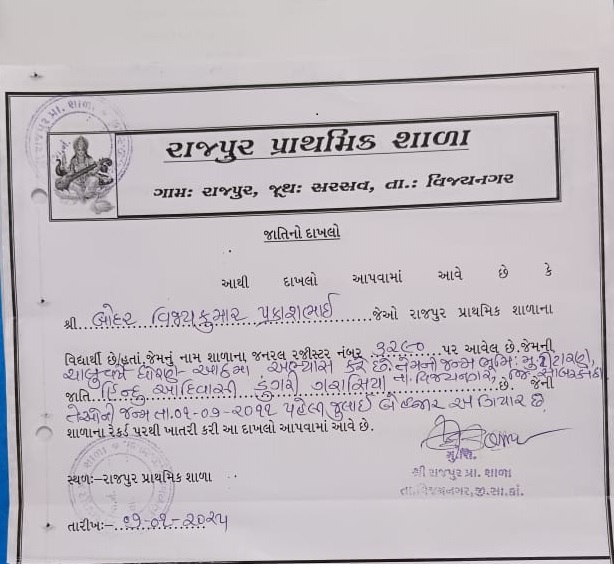 રાજપુર પ્રાથમિક શાળા
ગામઃ રાજપુર, જૂથઃ સરસવ, તા.: વિજયનગર
જાતિનો દાખલો
આથી દાખલો આપવામાં આવે છે કે
શ્રી વિજયકુમાર પ્રકાશભાઈ જેઓ રાજપુર પ્રાથમિક શાળાના
વિદ્યાર્થી છે/હતાં,જેમનું નામ શાળાના જનરલ રજીસ્ટર નંબર ૩૨૯૦ પર આવેલ છે.જેમની
ચાલુ વર્ષે ધોરણ આઠમાં અભ્યાસ કરે છે. તેમની જન્મ ભૂમિ: મુ.
જાતિ હિન્દુ આદિવાસી ડુંગરી ગરાસિયા તા. વિજયનગર, જિ. સાબરકાંઠા છે. જેની
તેઓની જન્મ તા. પહેલી જુલાઈ બે હજાર અગિયાર છે.
શાળાના રેકર્ડ પરથી ખાતરી કરી આ દાખલો આપવામાં આવે છે.
સ્થળઃ-રાજપુર પ્રાથમિક શાળા
શ્રી રાજપુર પ્રા. શાળા
તા.વિજયનગર,જી.સા.કાં.
તારીખઃ-